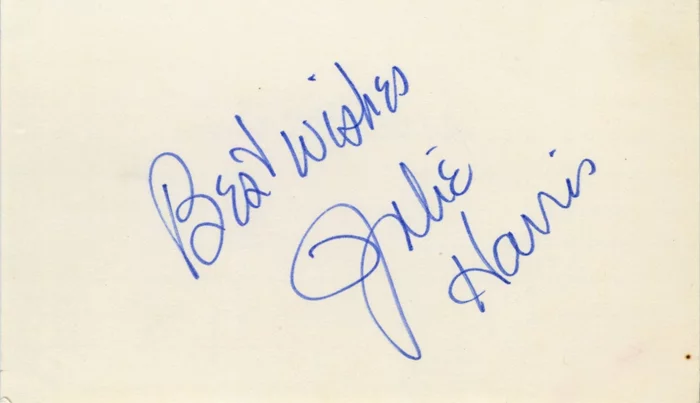 Best Wishes
Julie
Harris